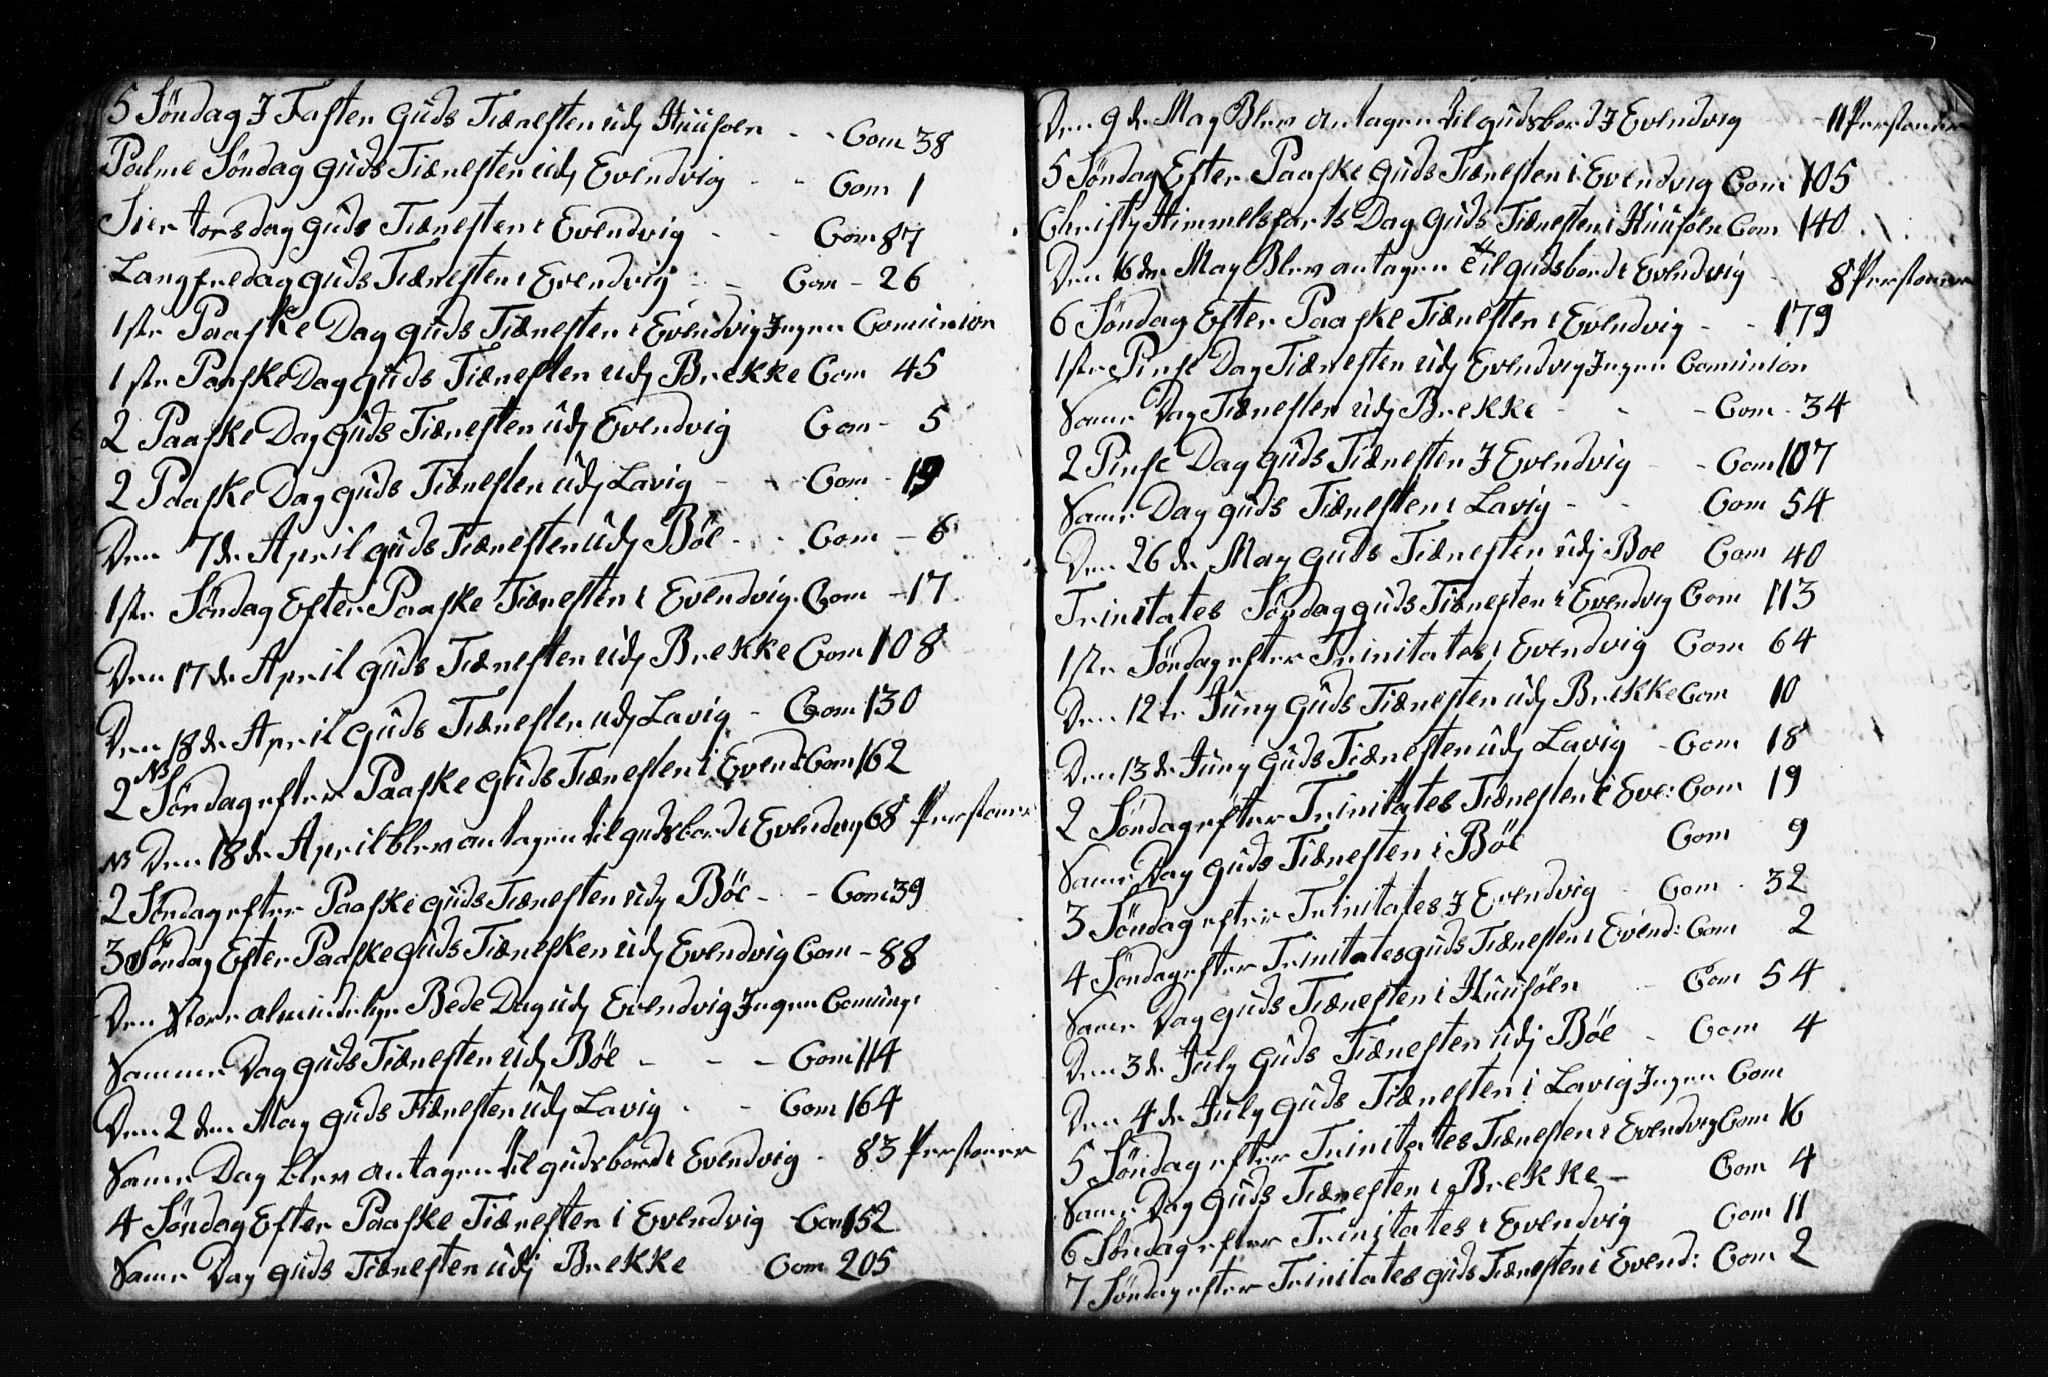 5 Søndag I Fasten Guds Tiænesten udj Huusøen - - Com 38
Palme Søndag Guds Tiænesten udj Evendvig - - Com 1
Sier torsdag Guds Tiænesten i Evendvig - - Com 87
Langfredag Guds Tiænesten i Evendvig - - Com - 26
1ste Paaske Dag Guds Tiænesten i Evendvig Ingen Comunion
1ste Paaske Dag Guds Tiænesten udj Brekke Com 45
2 Paaske Dag Guds Tiænesten udj Evendvig Com - 5
2 Paaske Dag Guds Tiænesten udj Lavig - - Com - 19
Den 7de April Guds Tiænesten udj Böe - - Com - 6
1ste Søndag Efter Paaske Tiænesten i Evendvig Com - 17
Den 17de April Guds Tiænesten udj Brekke Com 108
Den 18de April Guds Tiænesten udj Lavig - Com 130
2 NB Søndag efter Paaske Guds Tiænesten i Evend: Com 162
NB Den 18de April blev antagen til gudsbord i Evendvig 68 Perstoner
2 Søndag efter Paaske Guds Tiænesten udj Böe - - Com 39
3 Søndag Efter Paaske Guds Tiænesken udj Evendvig Com - 88
Den Store almindelige Bede Dag udj Evendvig Ingen Comung:
Samme Dag Guds Tiænesten udj Böe - - - Com 114
Den 2den May Guds Tiænesten udj Lavig - - Com 164
Same Dag blev antagen til gudsbord i Evendvig - 83 Perstoner
4 Søndag Efter Paaske Tiænesten i Evendvig Com 152
Same Dag Guds Tiænesten udj Brekke Com 205
Den 9de May Blev antagen til gudsbord I Evendvig - 11 Perstoner
5 Søndag Efter Paaske Guds Tiænesten i Evendvig Com 105
Christy Himmelsfarts Dag Guds Tiænesten i Huusöen Com 140
Den 16de May Blev antagen til gudsbord i Evendvig 8 Perstoner
6 Søndag Efter Paaske Tiænesten i Evendvig - - 179
1ste Pinse Dag Tiænesten udj Evendvig Ingen Comunion
Same Dag Tiænesten udj Brekke - - - Com - 34
2 Pinse Dag Guds Tiænesten I Evendvig - - Com 107
Same Dag Guds Tiænesten i Lavig - - Com 54
Den 26de May Guds Tiænesten udj Boe Com 40
Trinitates Søndag Guds Tiænesten i Evendvig Com 113
1ste Søndag efter Trinitates i Evendvig Com 64
Den 12te Juny Guds Tiænesten udj Brekke Com 10
Den 13de Juny Guds Tiænesten udj Lavig - Com 18
2 Søndag efter Trinitates Tiænesten i Eve: Com 19
Same Dag Guds Tiænesten i Böe Com 9
3 Søndag efter Trinitates I Evendvig - Com - 32
4 Søndag efter Trinitates guds Tiænesten i Evend: Com 2
Same Dag Guds Tiænesten i Huusöen - Com 54
Den 3de July Guds Tiænesten udj Böe - Com 4
Den 4de July Guds Tiænesten i Lavig Ingen Com
5 Søndag efter Trinitates Tiænesten i Evendvig Com 16
Same Dag Guds Tiænesten i Brekke - Com 4
6 Søndag efter Trinitates i Evendvig Com 11
7 Søndag efter Trinitates Guds Tiænesten i Evend: Com 2